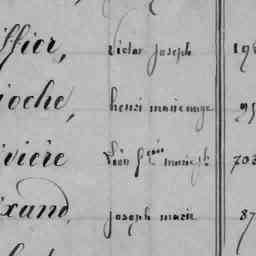 ffier, Victor Joseph 19
ioche, henri marie ange 95
ivière Léon fçois marie jh 703
ixand, joseph marie 87